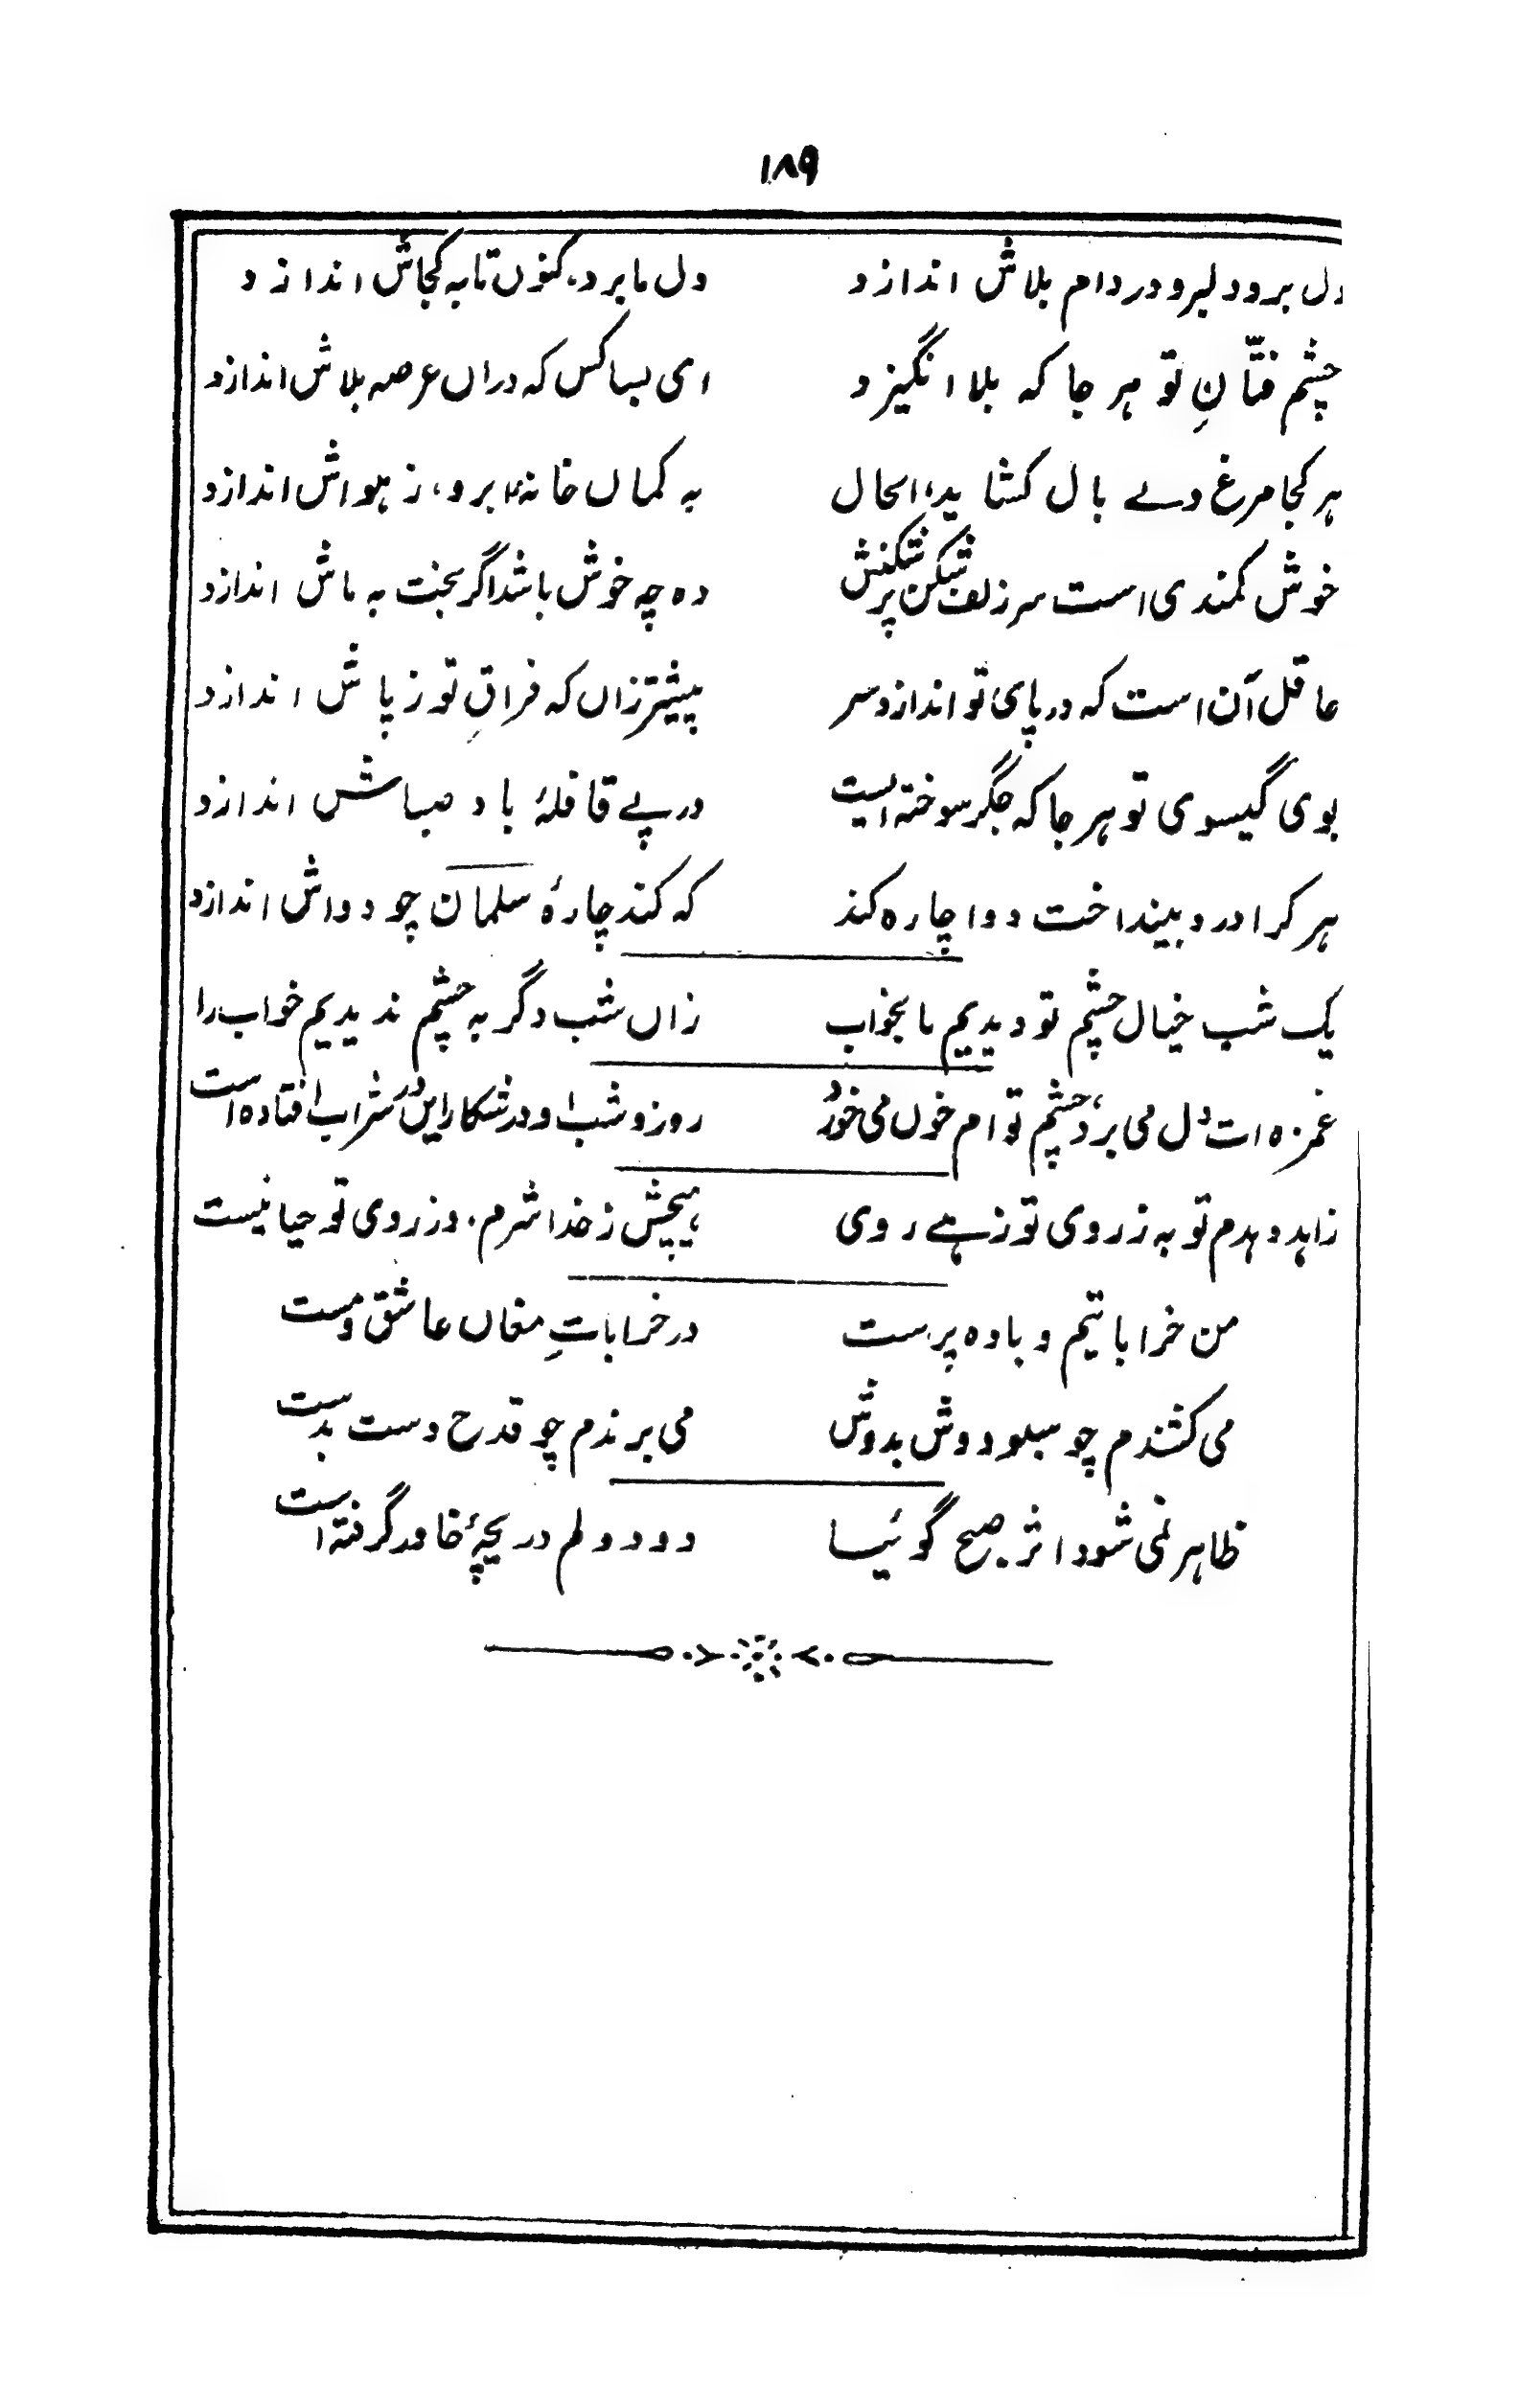 ۱۸۹
دل برود لبرو در دام بلاش اندازد دل ما برد، کنوں تا به کجاش اندازد
چشم فتّانِ تو هر جا که بلا انگیزد ای بسا کس که دراں عرصه بلاش اندازد
هر کجا مرغ دلے بال کشاید، الحال به کماں خانهٔ ابرو، ز هواش اندازد
خوش کمندی است سر زلف شکن پر شکنش ده چه خوش باشد اگر بخت به ماش اندازد
عاقل آن است که در پای تو اندازد سر پیشتر زاں که فراقِ تو ز پاش اندازد
بوی گیسوی تو هر جا که جگر سوخته ایست در پے قافلهٔ باد صباش اندازد
هر کرا درد بینداخت دوا چاره کند که کند چارهٔ سلمان چو دواش اندازد
یک شب خیال چشم تو دیدیم ما بخواب زاں شب دگر به چشم ندیدیم خواب را
غمزه ات دل می برد، چشم تو ام خوں می خورد روز و شب او در شکار این در شراب افتاده است
زاهد دهدم توبه ز روی تو زهے روی هیچش ز خدا شرم، و ز روی تو حیا نیست
من خراباتیم و باده پرست در خراباتِ مغاں عاشق و مست
می کشندم چو سبو دوش بدوش می برندم چو قدح دست بدست
ظاهر نمی شود اثر صبح گوئیا دود دلم دریچهٔ خاور گرفته است